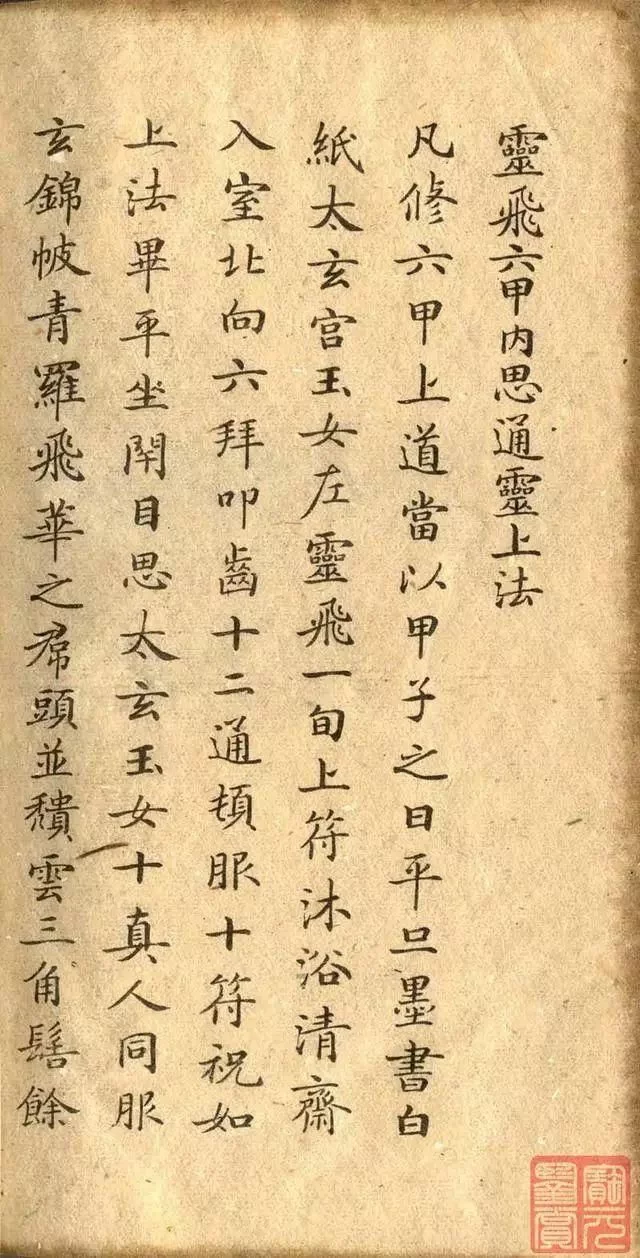 靈飛六甲內思通靈上法
凡修六甲上道當以甲子之日平旦墨書白
紙太玄宮玉女左靈飛一旬上符沐浴清齋
入室北向六拜叩齒十二通頓服十符祝如
上法畢平坐閉目思太玄玉女十真人同服
玄錦帔青羅飛華之帬頭並頹雲三角髻餘